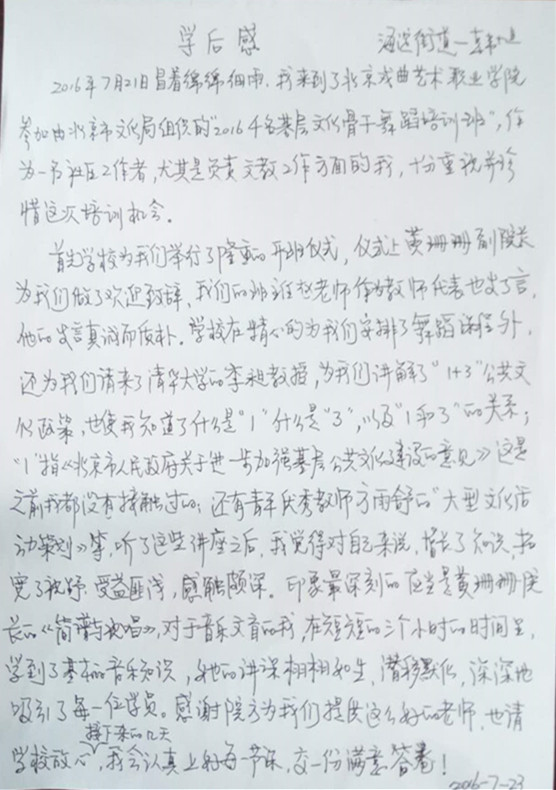 学后感
海淀街道一
2016年7月21日冒着绵绵细雨,我来到了北京戏曲艺术职业学院
参加由北京市文化局组织的"2016千名基层文化骨干舞蹈培训班",作
为一名社区工作者,尤其是负责文教工作方面的我,十分重视并珍
惜这次培训机会。
首先学校为我们举行了隆重的开班仪式,仪式上黄珊珊副院长
为我们做了欢迎致辞,我们的班班赵老师作为教师代表也发了言,
他的发言真诚而质朴。学校在精心的为我们安排了舞蹈课程外,
还为我们请来了清华大学的李昶教授,为我们讲解了"1+3"公共文
化政策,也使我知道了什么是"1"什么是"3",以及"1和3"的关系;
"1"指《北京市人民政府关于进一步加强基层公共文化建设的意见》这是
之前我都没有接触过的;还有青年优秀教师方雨舒的"大型文化活
动策划》等,听了这些讲座之后,我觉得对自己来说,增长了知识,拓
宽了视野,受益匪浅,感触颇深。印象最深刻的应当是黄珊珊院
长的《简谱与视唱》,对于音乐文盲的我,在短短的三个小时的时间里,
学到了基本的音乐知识,她的讲课栩栩如生,潜移默化,深深地
吸引了每一位学员。感谢院方为我们提供这么好的老师,也请
学校放心,接下来的几天我会认真上好每一节课,交一份满意答卷!
2016-7-23